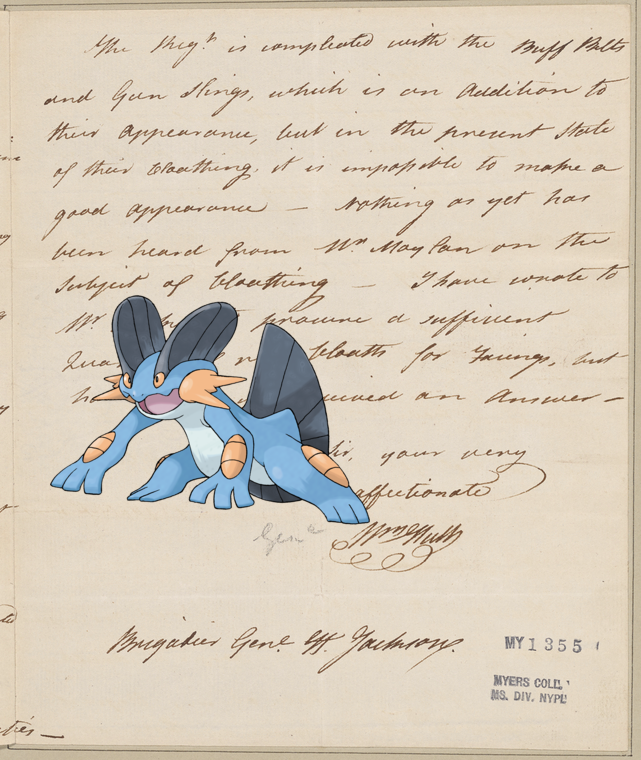 The Regt. is compleated with the Buff Belts
and Gun Slings, which is an Addition to
their Appearance, but in the present State
of their Cloathing, it is impossible to make a
good appearance — Nothing as yet has
been heard from Mr. Maylan on the
Subject of Cloathing — I have wrote to
Mr procure a sufficient
Cloath for Facings, but
an Answer —
your very
affectionate
Wm Hull
Genl
Brigadier Genl. H. Jackson.
MY 1355
MYERS COLL.
MS. DIV. NYPL